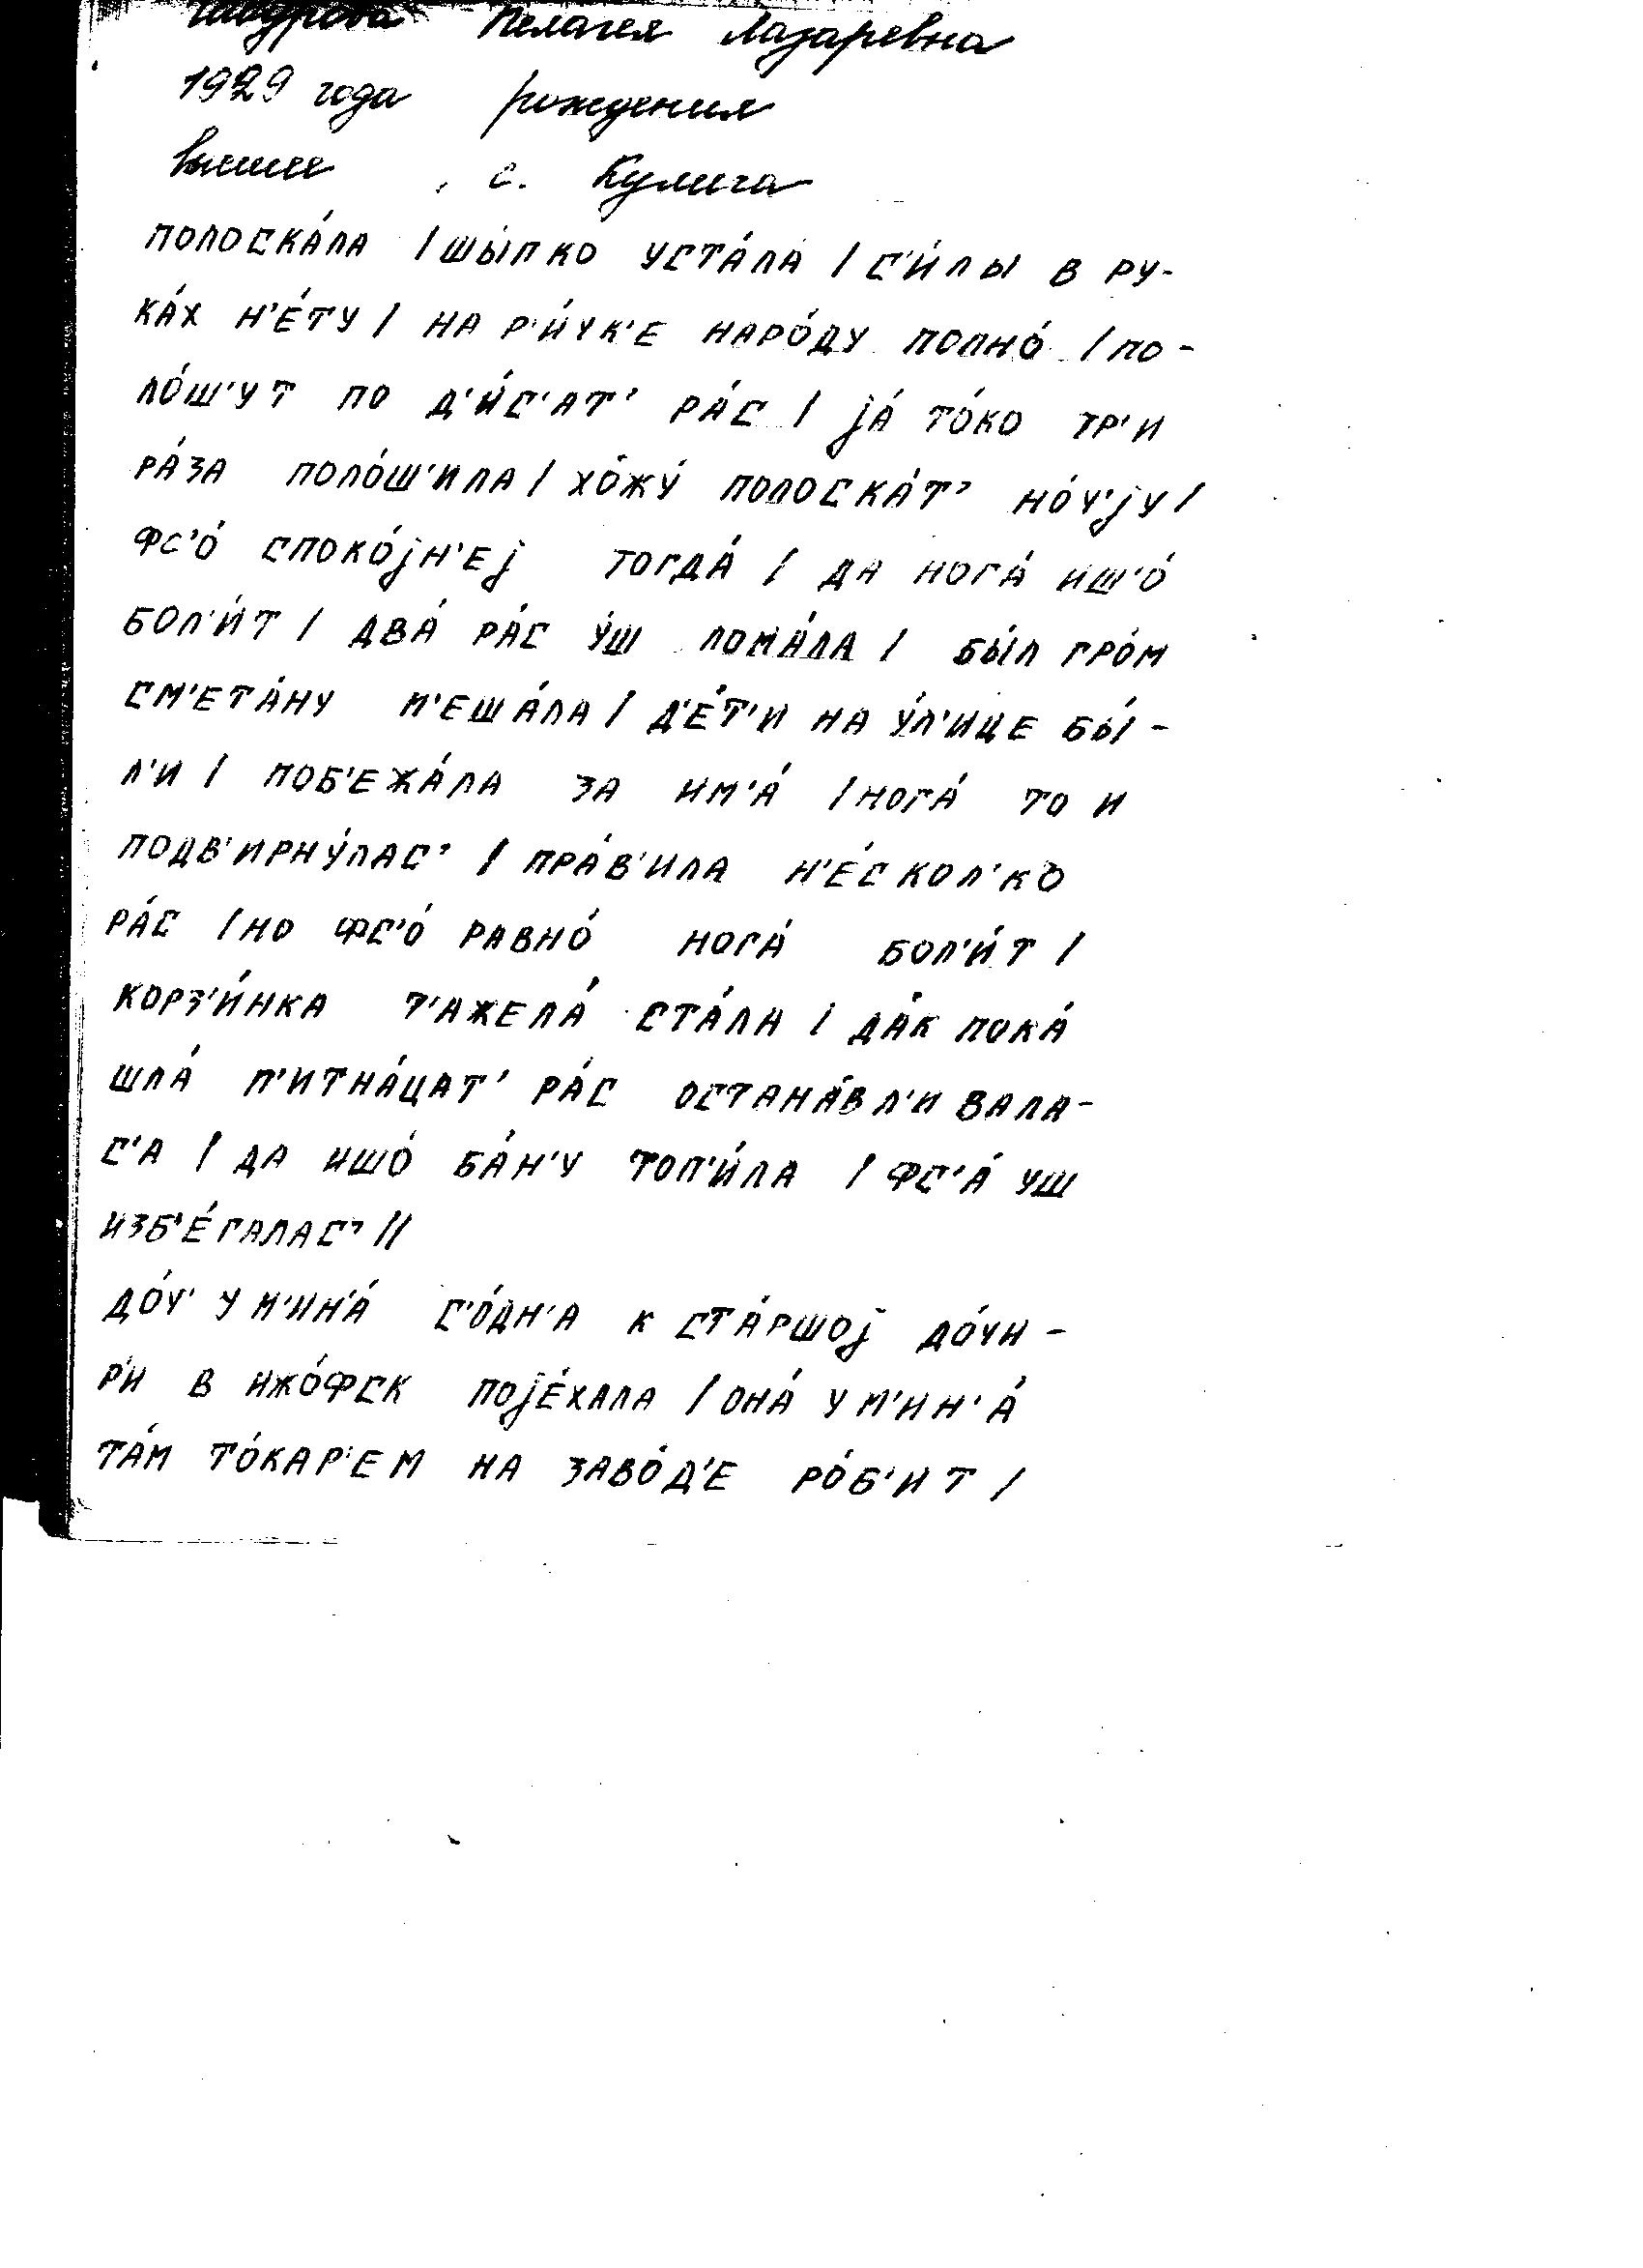 Пелагея Лазаревна
1929 года рождения
с. Кулига
ПОЛОСКА́ЛА / ШЫ́ПКО УСТА́ЛА / С'И́ЛЫ В РУ-
КА́Х Н'Е́ТУ / НА Р'И́ЧК'Е НАРО́ДУ ПОЛНО́ / ПО-
ЛО́Ш'УТ ПО Д'И́С'АТ' РА́С / JА́ ТО́КО ТР'И
РА́ЗА ПОЛО́Ш'ИЛА / ХО́ЖУ́ ПОЛОСКА́Т' НО́Ч'JУ /
ФС'О́ СПОКО́JН'ЕJ ТОГДА́ / ДА НОГА́ ИШ'О́
БОЛ'И́Т / ДВА́ РА́С У́Ш ЛОМА́ЛА / БЫ́Л ГРО́М
СМ'ЕТА́НУ М'ЕША́ЛА / Д'Е́Т'И НА У́Л'ИЦЕ БЫ́-
Л'И / ПОБ'ЕЖА́ЛА ЗА ИМ'А́ / НОГА́ ТО И
ПОДВ'ИРНУ́ЛАС' / ПРА́В'ИЛА Н'Е́СКОЛ'КО
РА́С / НО ФС'О́ РАВНО́ НОГА́ БОЛ'И́Т /
КОРЗ'И́НКА Т'АЖЕЛА́ СТА́ЛА / ДА́К ПОКА́
ШЛА́ П'ИТНА́ЦАТ' РА́С ОСТАНА́ВЛ'ИВАЛА-
С'А / ДА ИШО́ БА́Н'У ТОП'И́ЛА / ФС'А́ УШ
ИЗБ'Е́ГАЛАС' //
ДО́Ч' У М'ИН'А́ С'О́ДН'А К СТА́РШОJ ДО́ЧИ-
Р'И В ИЖО́ФСК ПОJЕ́ХАЛА / ОНА́ У М'ИН'А́
ТА́М ТО́КАР'ЕМ НА ЗАВО́Д'Е РО́Б'ИТ /